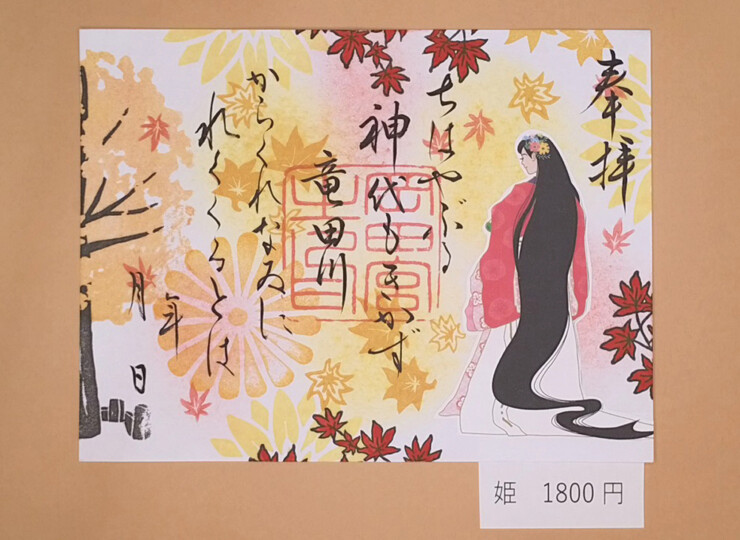 奉拝
ちはやぶる
神代もきかず
竜田川
からくれなゐに
水くくるとは
年
月 日
岡田宮
之印
姫 1800円